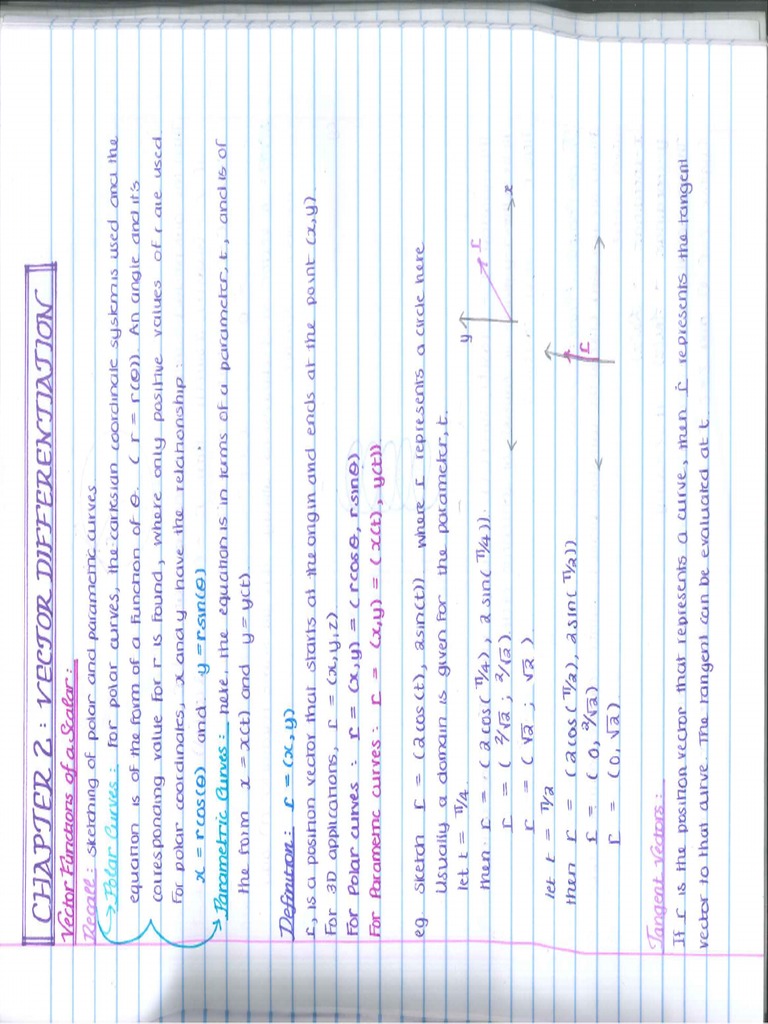 CHAPTER 2: VECTOR DIFFERENTIATION
Vector Functions of a Scalar:
Recall: sketching of polar and parametric curves
→ Polar Curves: For polar curves, the cartesian coordinate system is used and the
equation is of the form of a function of θ. (r = r(θ)). An angle and it's
corresponding value for r is found, where only positive values of r are used.
For polar coordinates, x and y have the relationship:
x = rcos(θ) and: y = rsin(θ)
→ Parametric Curves: here, the equation is in terms of a parameter, t, and is of
the form x = x(t) and y = y(t)
Definition: r = (x, y)
r, is a position vector that starts at the origin and ends at the point (x,y).
For 3D applications, r = (x,y,z).
For Polar curves: r = (x,y) = (rcosθ, rsinθ)
For Parametric curves: r = (x,y) = (x(t), y(t))
eg sketch r = (2cos(t), 2sin(t)) where r represents a circle here
Usually a domain is given for the parameter, t.
let t = π/4
then r = (2cos(π/4), 2sin(π/4)).
r = (2/√2 ; 2/√2)
r = (√2 ; √2)
y
r
x
let t = π/2
then r = (2cos(π/2), 2sin(π/2))
r = (0, 2/√2)
r = (0, √2)
r
Tangent Vectors:
If r is the position vector that represents a curve, then ṙ represents the tangent
vector to that curve. The tangent can be evaluated at t